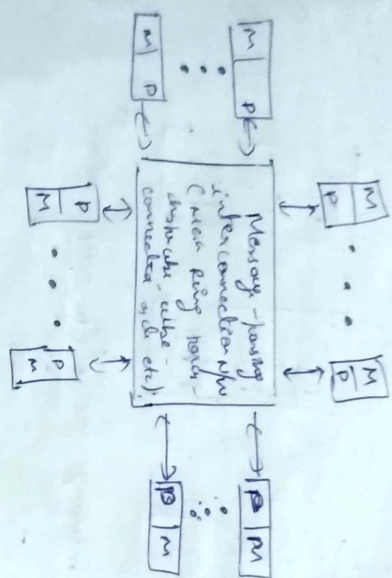 M
P
M
P
M P
Message-passing
P M
interconnection n/w
(Mesh ring torus-
hypercube, cube-
M P
connected cycle etc)
P M
P
M
P
M